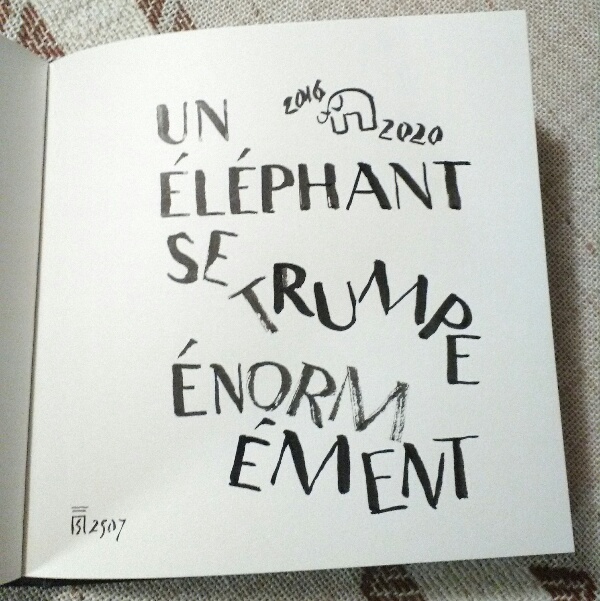 2016
2020
UN
ÉLÉPHANT
SE TRUMPE
ÉNORM
ÉMENT
2507